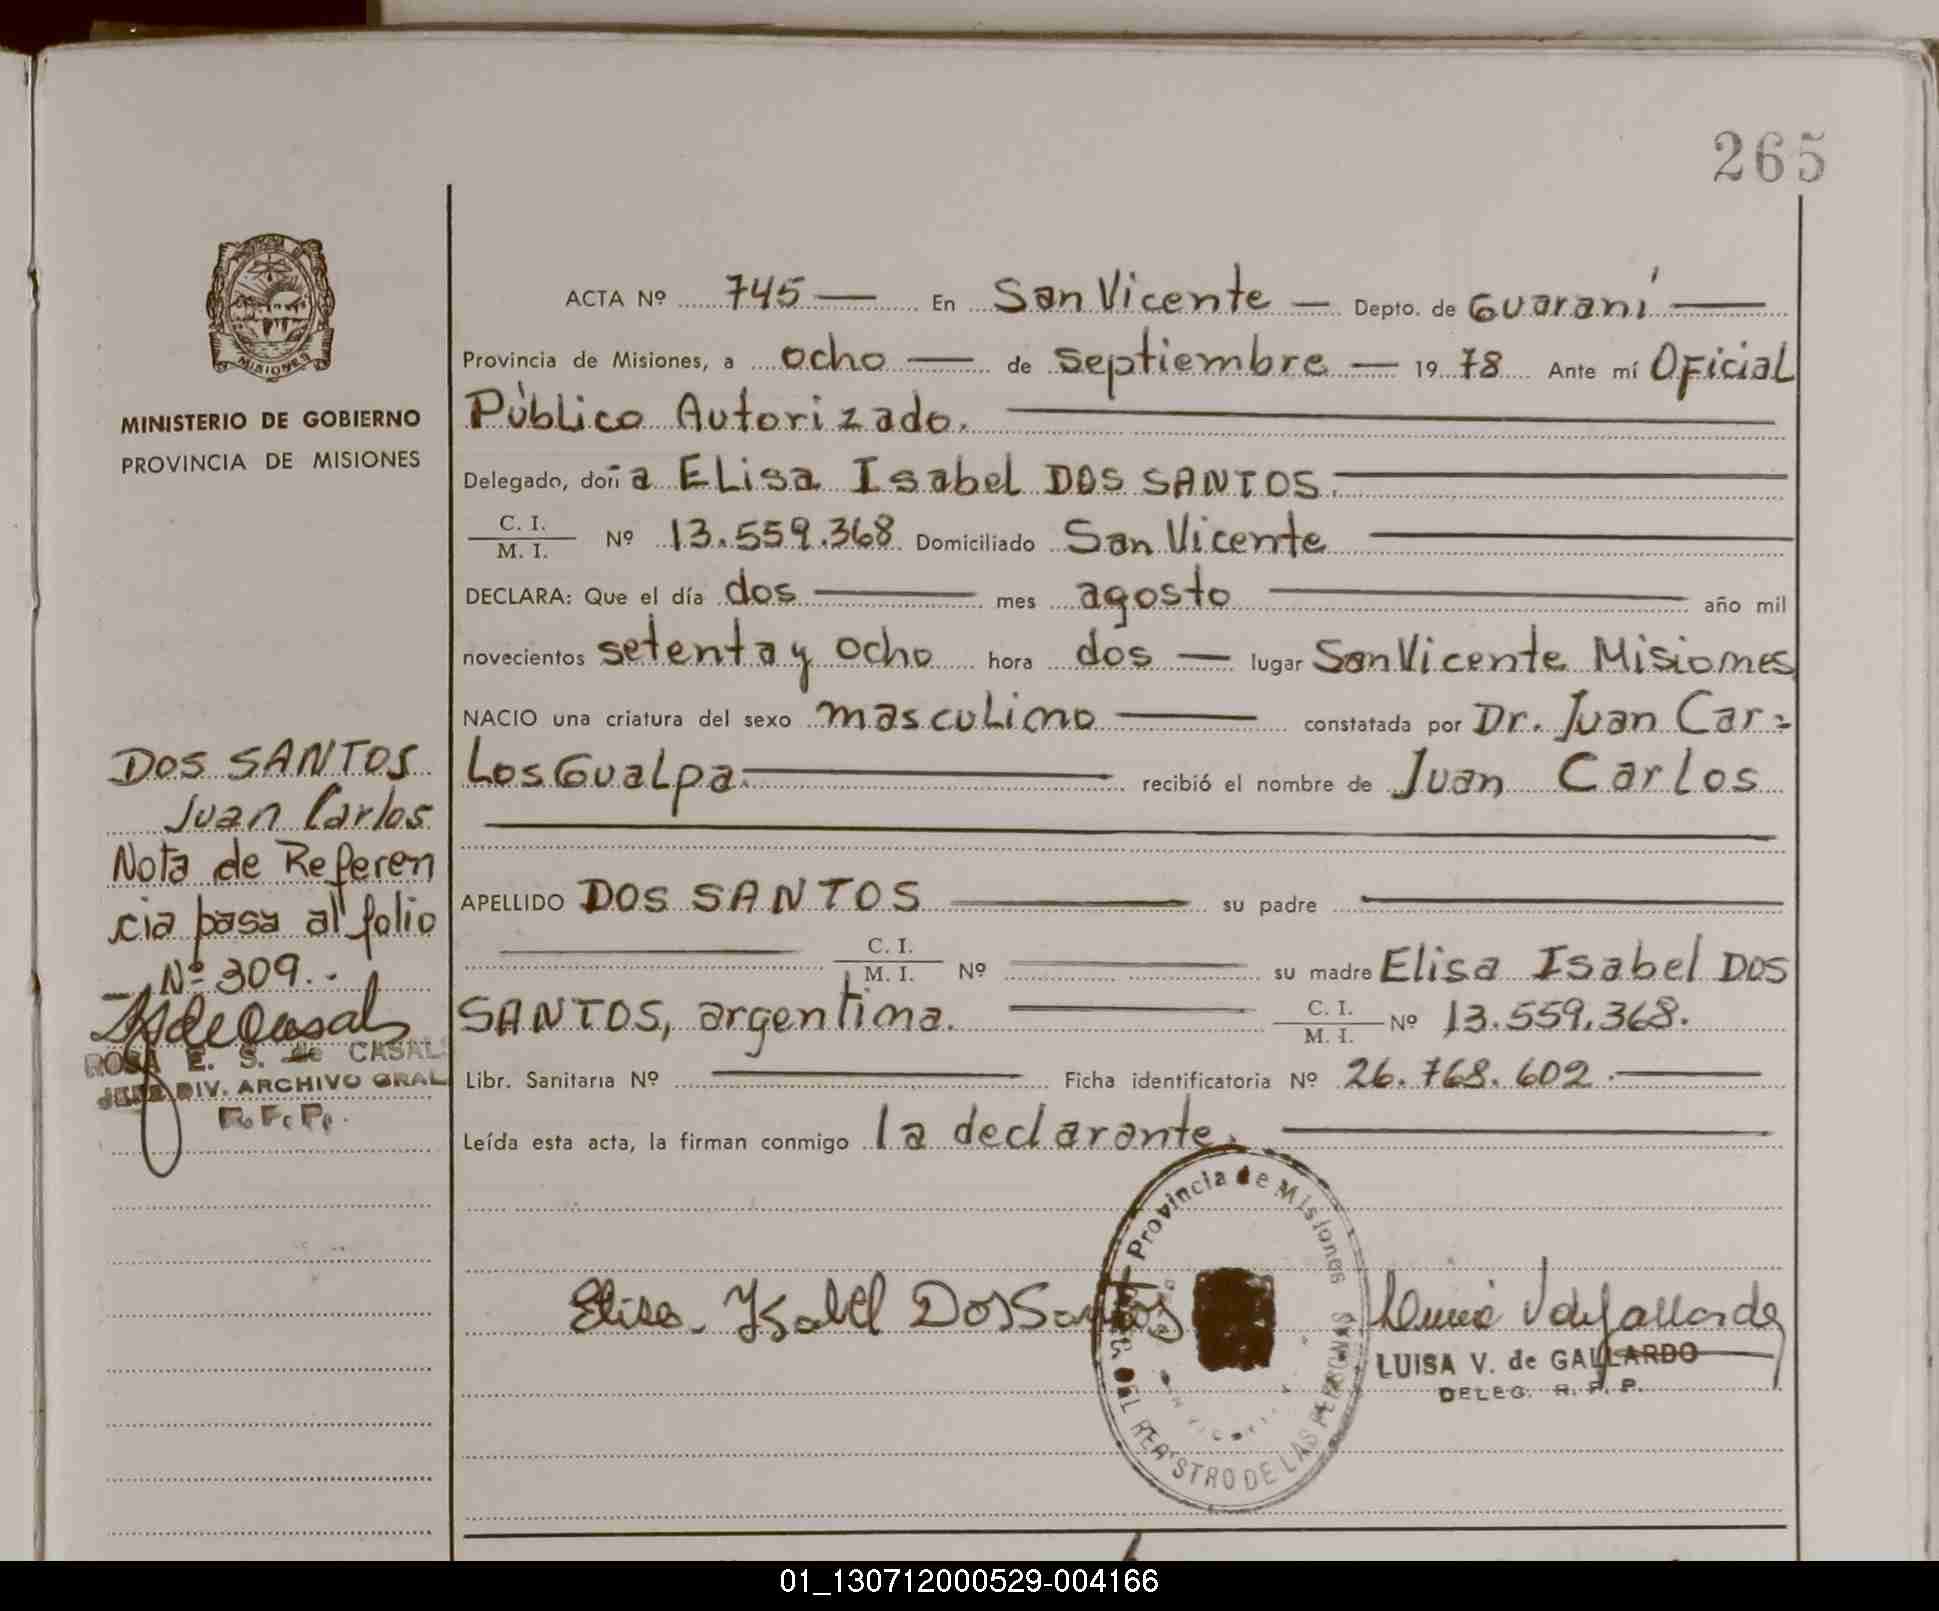 265
MISIONES
MINISTERIO DE GOBIERNO
PROVINCIA DE MISIONES
ACTA Nº 745 — En San Vicente — Depto. de Guaraní —
Provincia de Misiones, a ocho — de septiembre — 1978 Ante mí Oficial
Público Autorizado.
Delegado, doña Elisa Isabel DOS SANTOS.
C. I.
M. I. Nº 13.559.368 Domiciliado San Vicente
DECLARA: Que el día dos — mes agosto — año mil
novecientos setenta y ocho hora dos — lugar San Vicente Misiones
NACIO una criatura del sexo masculino — constatada por Dr. Juan Car=
los Gualpa. — recibió el nombre de Juan Carlos
APELLIDO DOS SANTOS — su padre —
C. I.
M. I. Nº — su madre Elisa Isabel DOS
SANTOS, argentina. — C. I.
M. I. Nº 13.559.368.
Libr. Sanitaria Nº — Ficha identificatoria Nº 26.768.602.—
Leída esta acta, la firman conmigo la declarante.
DOS SANTOS
Juan Carlos
Nota de Referen
cia pasa al folio
Nº 309.-
ROSA E. S. de CASALS
JEFE DIV. ARCHIVO GRAL
R. P. P.
Elisa Isabel Dos Santos
Provincia de Misiones
DEL REGISTRO DE LAS PERSONAS
LUISA V. de GALLARDO
DELEG. R. P. P.
01_130712000529-004166